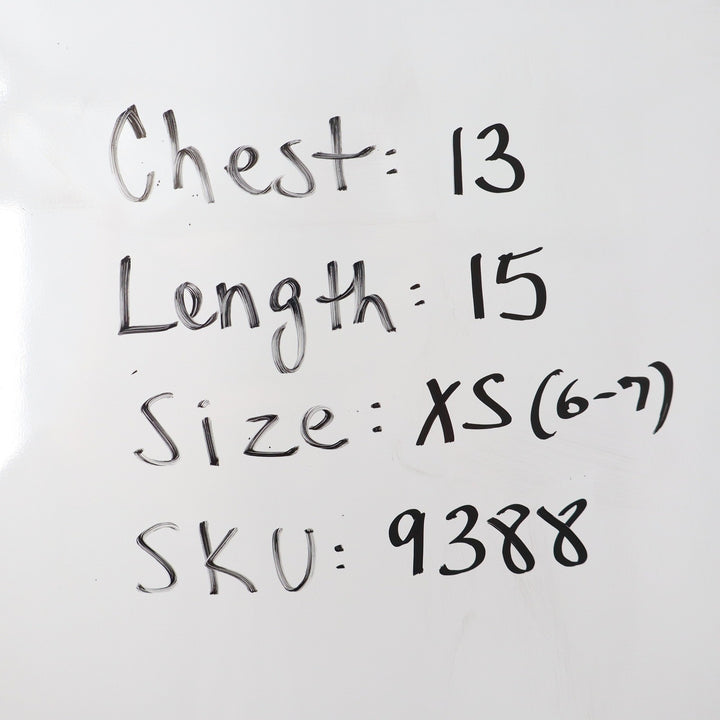 Chest: 13
Length: 15
Size: XS (6-7)
SKU: 9388